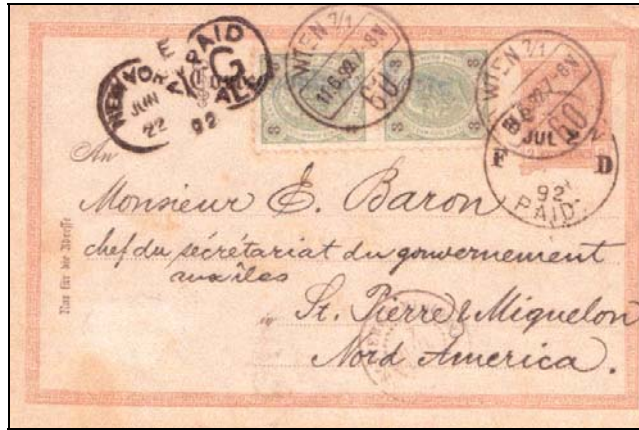 NEW YORK
JUN
22
92
PAID
G
ALL
WIEN 7/1
11.6.92.7-8N
60
3
3
3
3
WIEN 7/1
60
JUL
D
92
PAID
An
Monsieur E. Baron
chef du secrétariat du gouvernement
aux îles
in St. Pierre & Miquelon
Nord America.
Nur für die Adresse